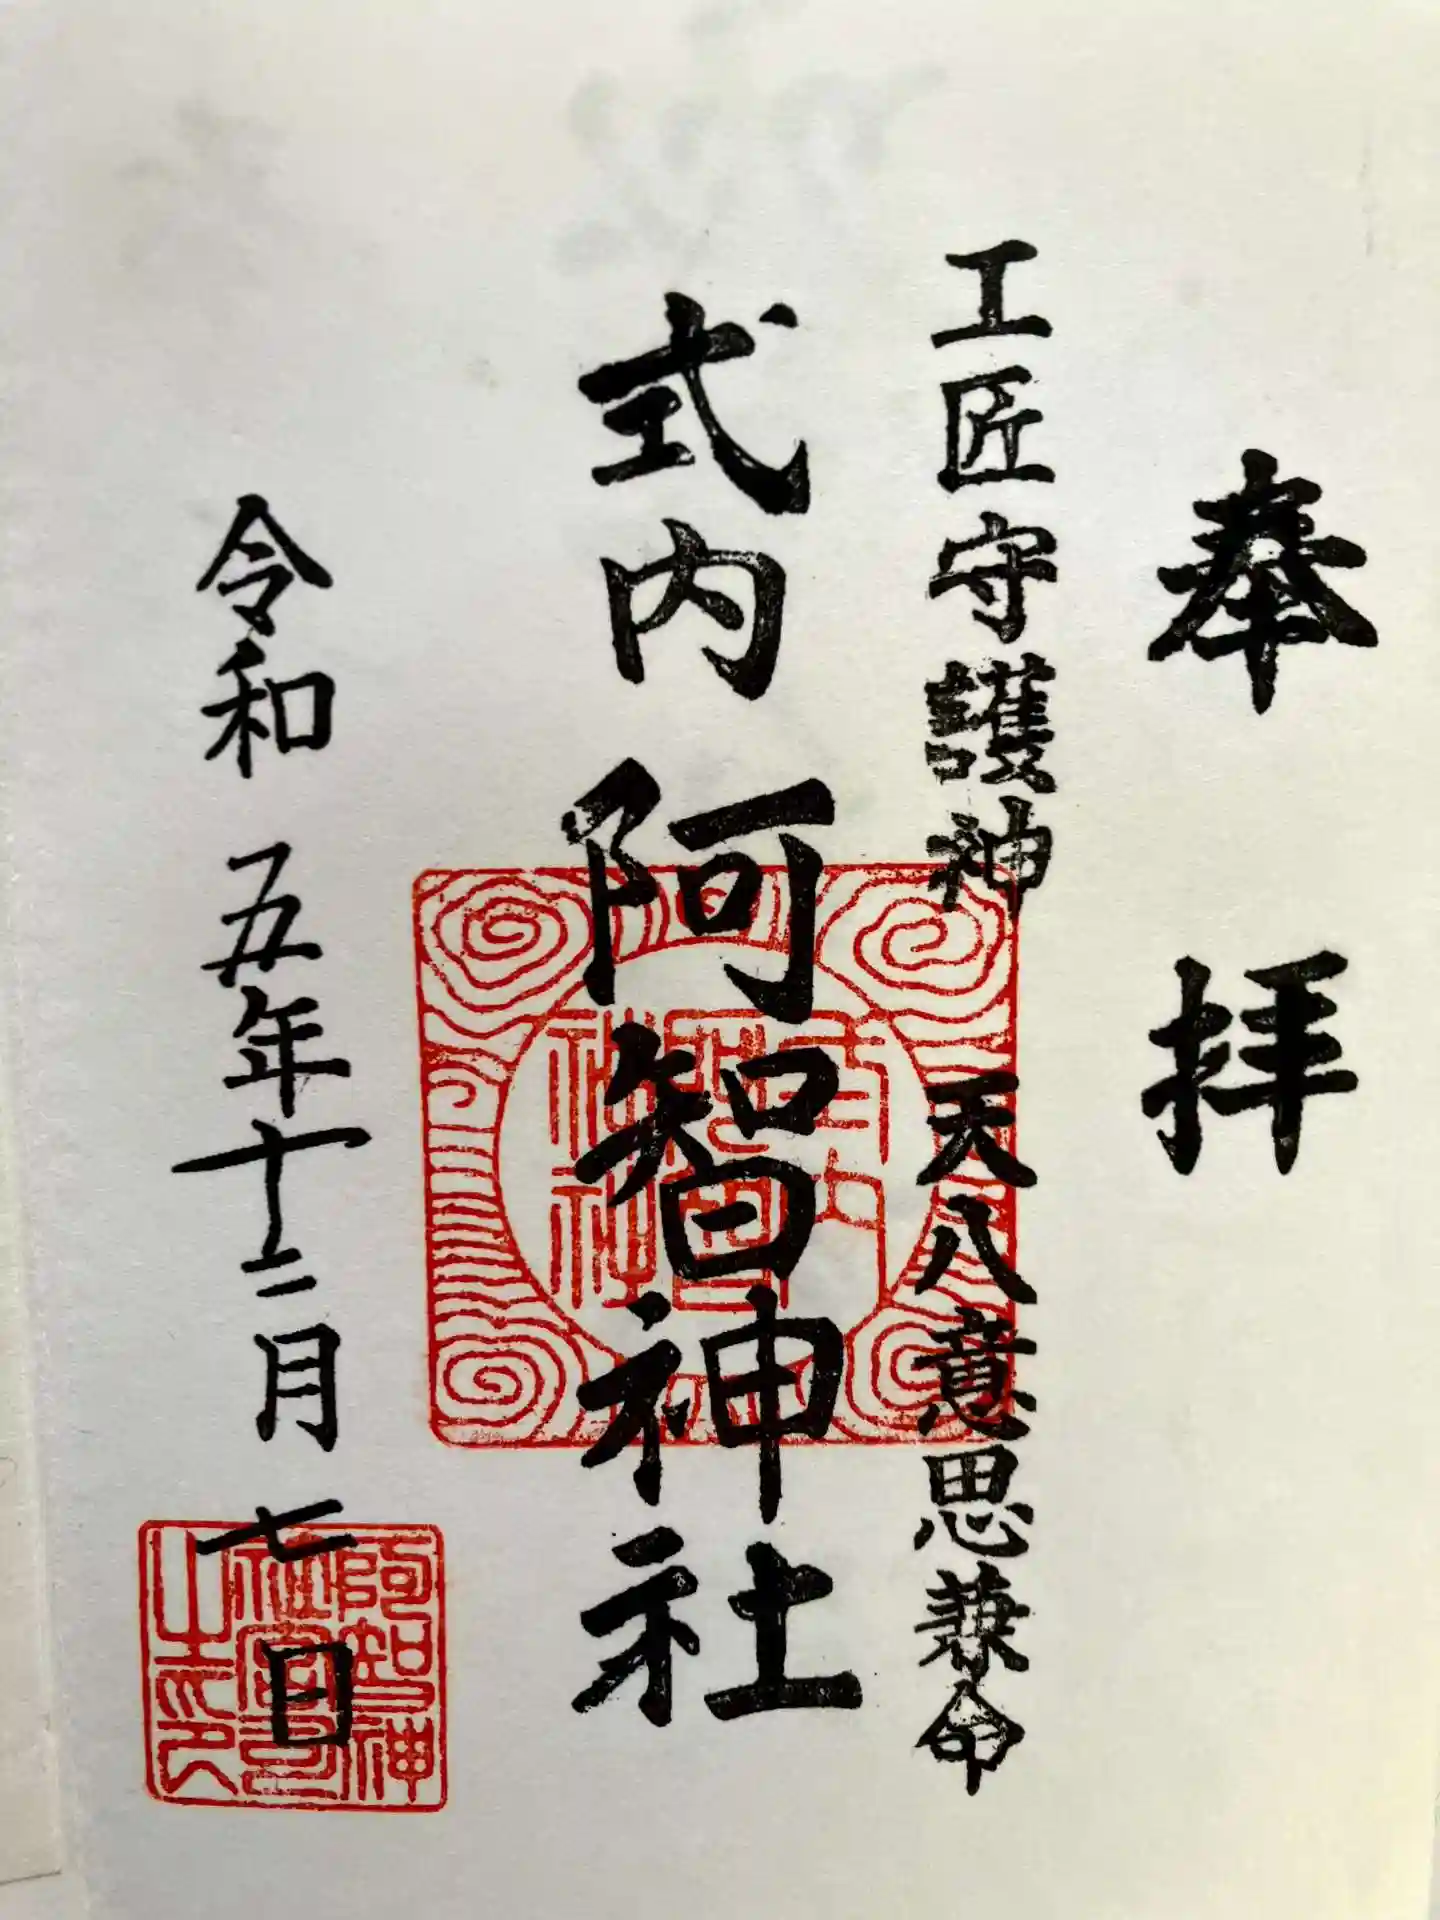 奉拝
工匠守護神 天八意思兼命
式内 阿智神社
式内阿智神社
令和五年十二月七日
阿智神社宮司之印